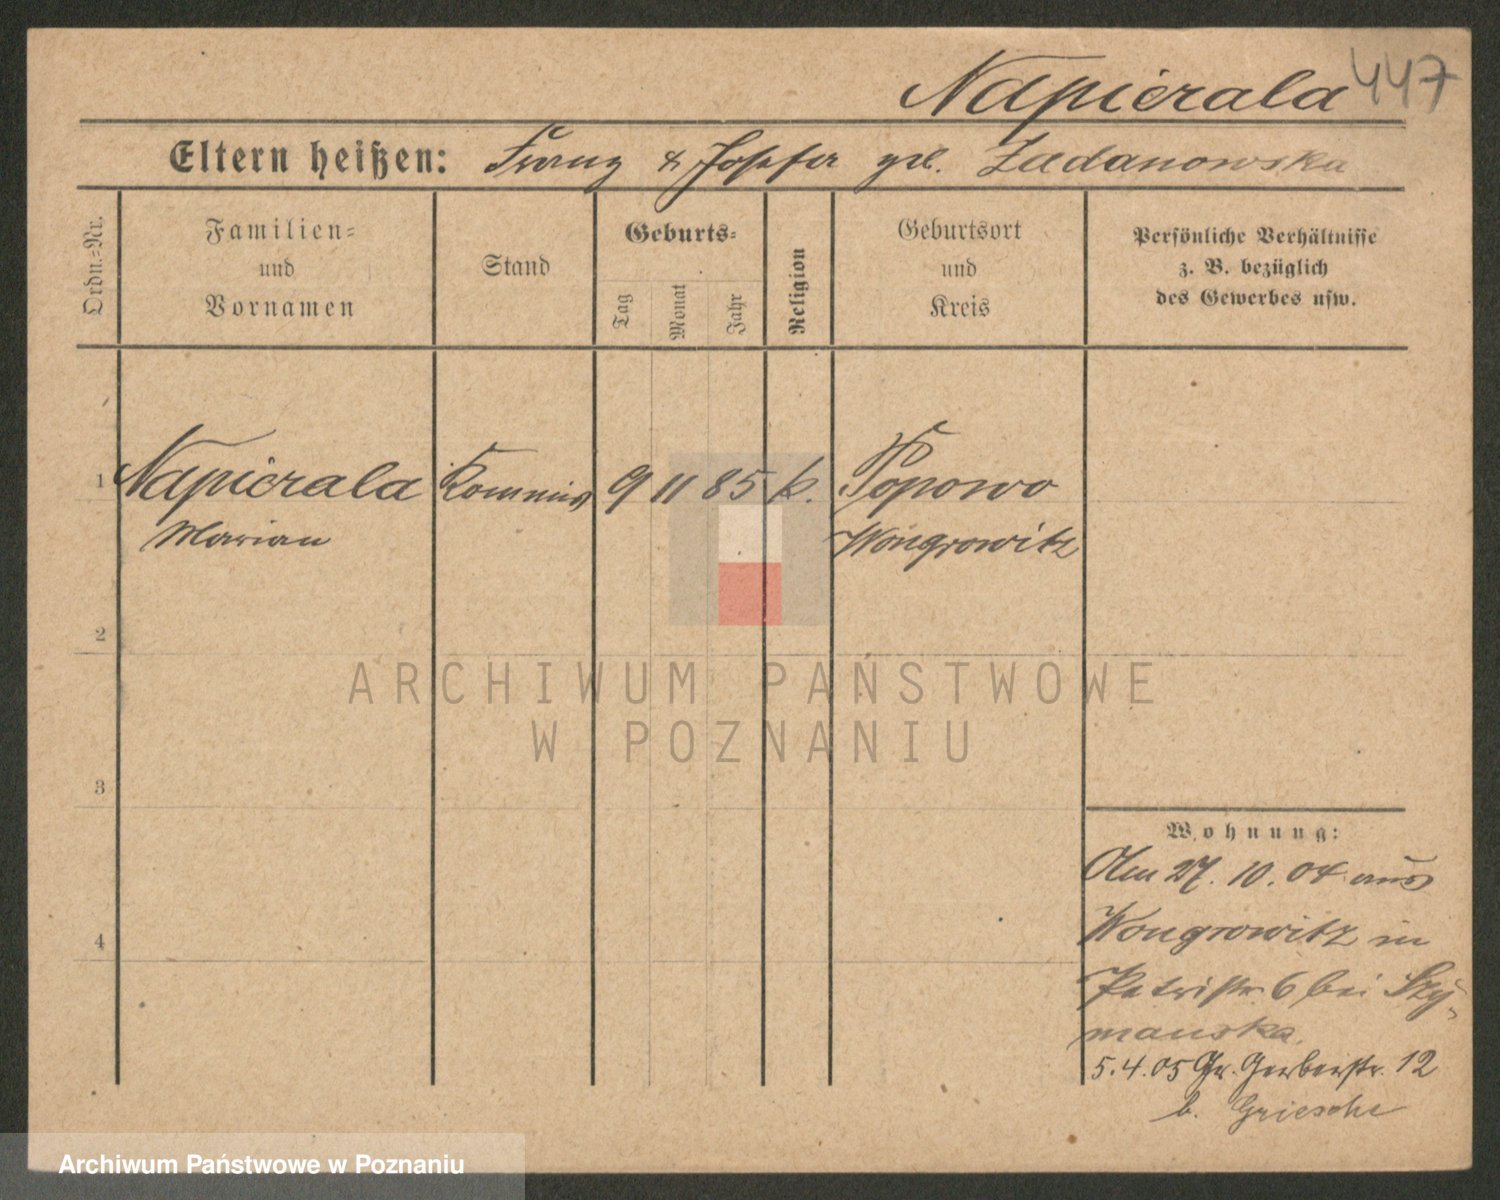 Napierala 447
Eltern heißen: Franz & Josefa geb. Zadanowska
Ordn.-Nr.
Familien-
und
Vornamen
Stand
Geburts-
Tag
Monat
Jahr
Religion
Geburtsort
und
Kreis
Persönliche Verhältnisse
z. B. bezüglich
des Gewerbes usw.
1 Napierala Kommis 9 11 85 k. Popowo
Marian Wongrowitz
2
3
4
ARCHIWUM PAŃSTWOWE
W POZNANIU
Wohnung:
Am 27. 10. 04 aus
Wongrowitz in
Petristr. 6 bei Szy-
manska.
5.4.05 Gr. Gerberstr. 12
b. Griesche
Archiwum Państwowe w Poznaniu